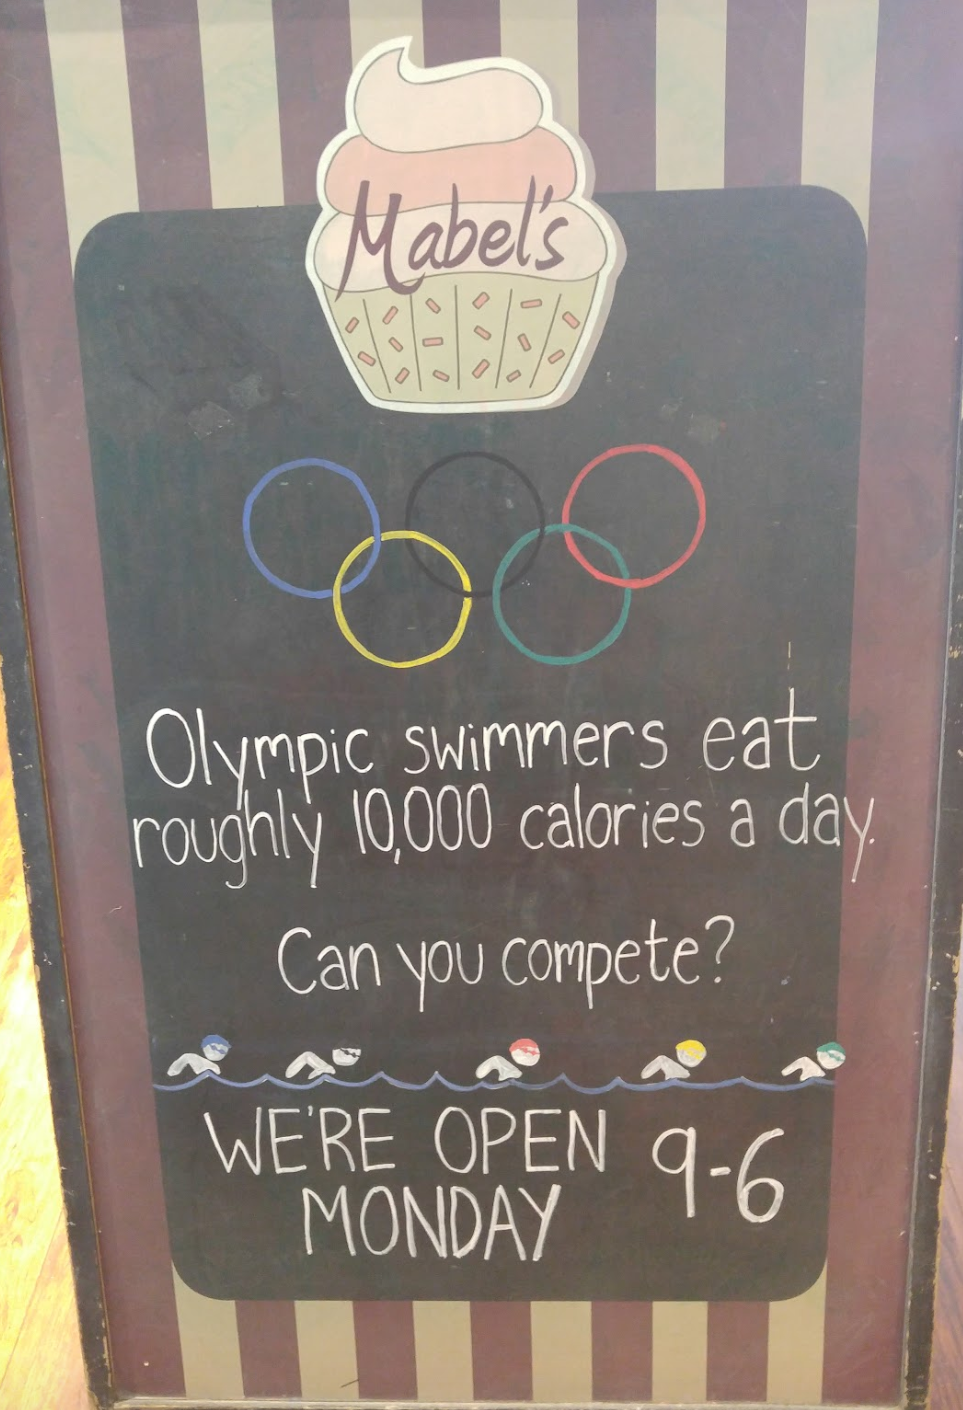 Mabel's
Olympic swimmers eat
roughly 10,000 calories a day.
Can you compete?
WE'RE OPEN 9-6
MONDAY